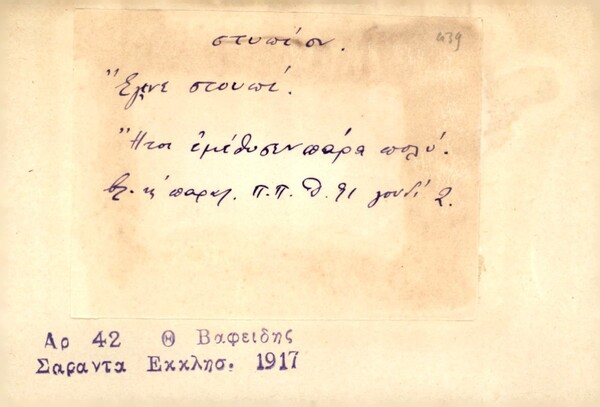 στυπίον.
439
Ἔγινε στουπί.
Ἤτοι ἐμέθυσεν πάρα πολύ.
βλ. κ̀ παραλ. Π.Π. Θ. 91 γουδί 2.
Αρ 42 Θ Βαφειδης
Σαραντα Εκκλησ. 1917